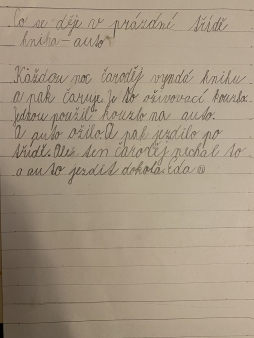 Co se děje v prázdné třídě
kniha - auto
Každou noc čaroděj vyndá knihu
a pak čaruje. Je to oživovací kouzlo.
Jednou použil kouzlo na auto.
A auto ožilo. A pak jezdilo po
třídě. Ale ten čaroděj nechal to
a auto jezdit dokola